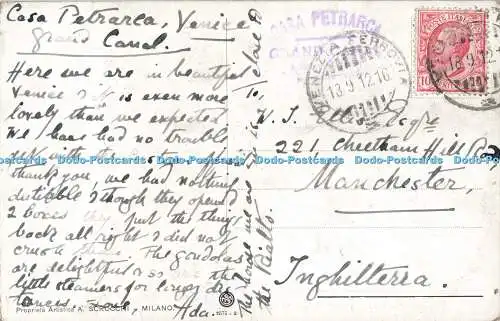 Casa Petrarca, Venice
Grand Canal.
Here we are in beautiful
Venice & it is even more
lovely than we expected
We have had no trouble
yet with the
thank you, we had nothing
dutiable & though they opened
2 boxes they put the things
back all right & did not
crush them. The gondolas
are delightful & so are the
little steamers for longer dis-
tances. Love, Ada.
The house we are in is close to
the Rialto.
CASA PETRARCA
GRAND
VENEZIA FERROVIA
13.9.12.16
POSTE ITALIANE
10
W. J. Esqre
221, Cheetham Hill Rd
Manchester,
Inghilterra.
Proprietà Artistica A. SCROCCHI, MILANO
Dodo-Postcards Dodo-Postcards Dodo-Postcards Dodo-Postcards Dodo-Postcards Dodo-Postcards